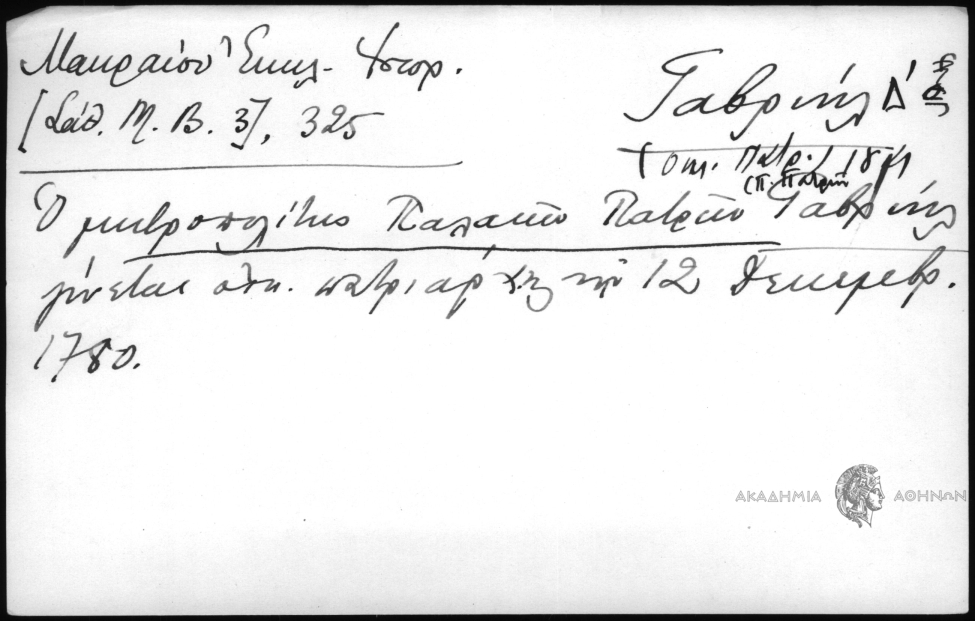 Μακραίου Ἐκκλ. Ἱστορ.
[Σάθ. Μ. Β. 3], 325
Γαβριήλ Δ΄
(οἰκ. Πατρ.) 18
(Π. Πατρῶν
Ὁ μητροπολίτης Παλαιῶν Πατρῶν Γαβριήλ
γίνεται οἰκ. πατριάρχης τῇ 12 Δεκεμβρ.
1780.
ΑΚΑΔΗΜΙΑ ΑΘΗΝΩΝ